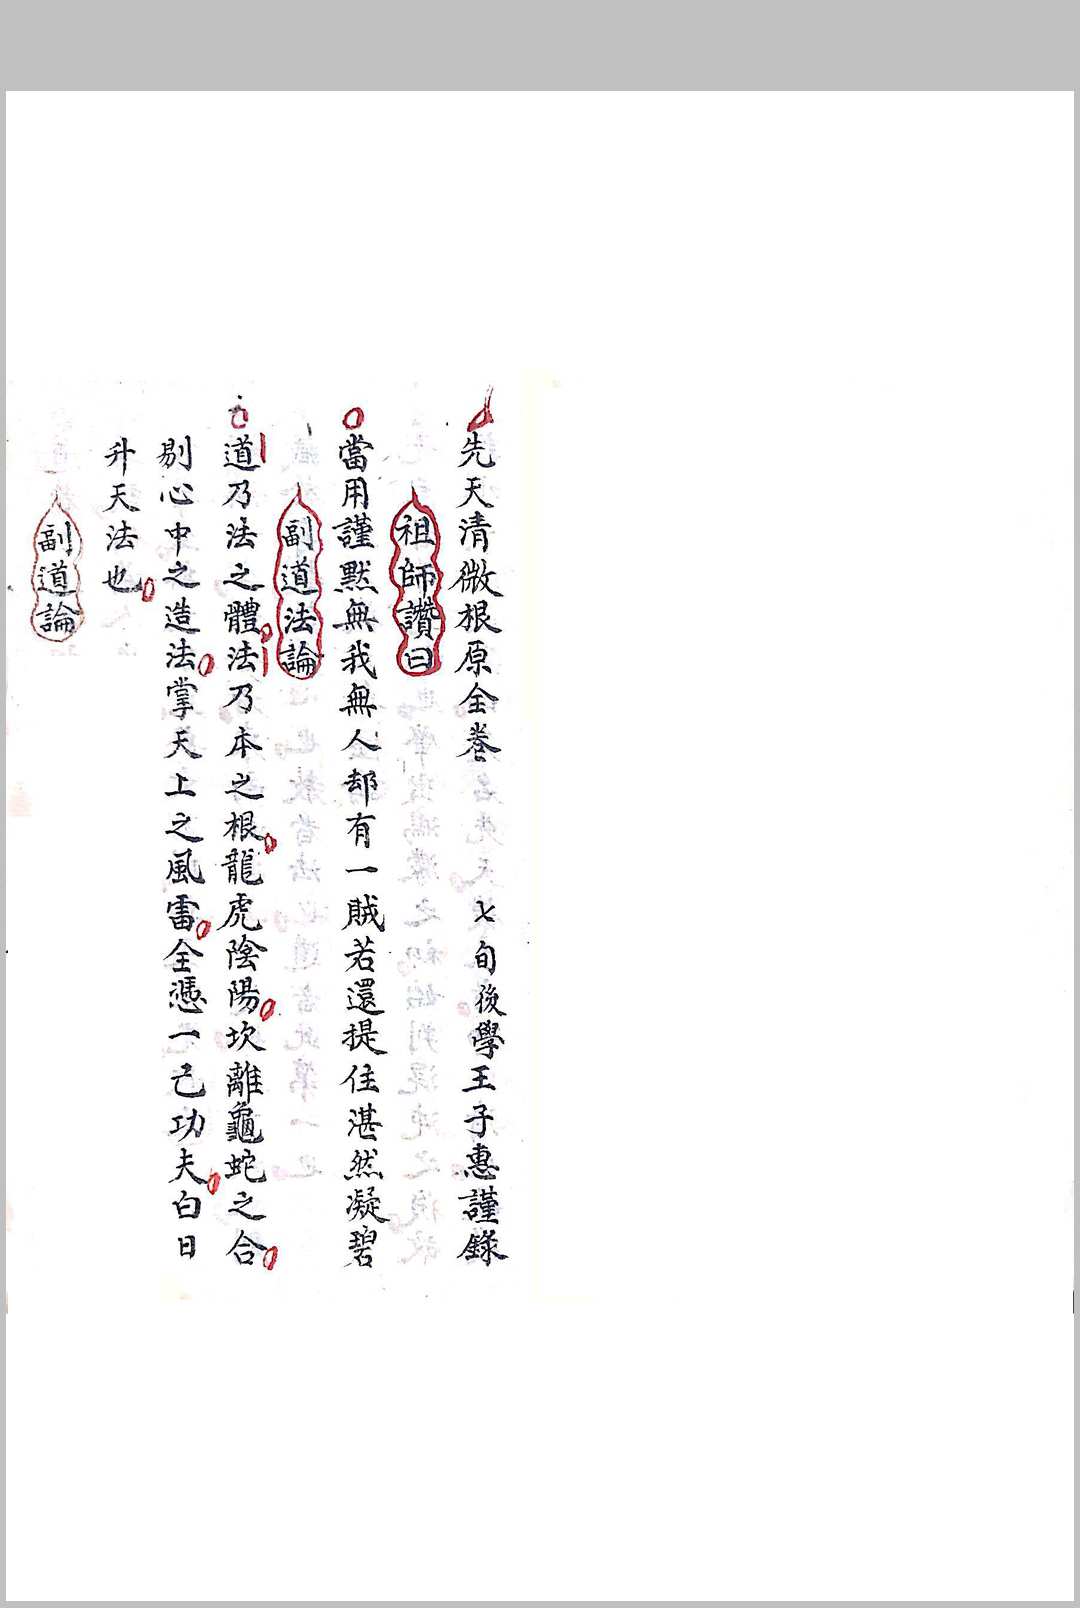 先天清微根原全卷 七旬後學王子惠謹錄
祖師讚曰
當用謹黙無我無人却有一賊若還提住湛然凝碧
副道法論
道乃法之體法乃本之根龍虎陰陽坎離龜蛇之合
剔心中之造法掌天上之風雷全憑一己功夫白日
升天法也
副道論